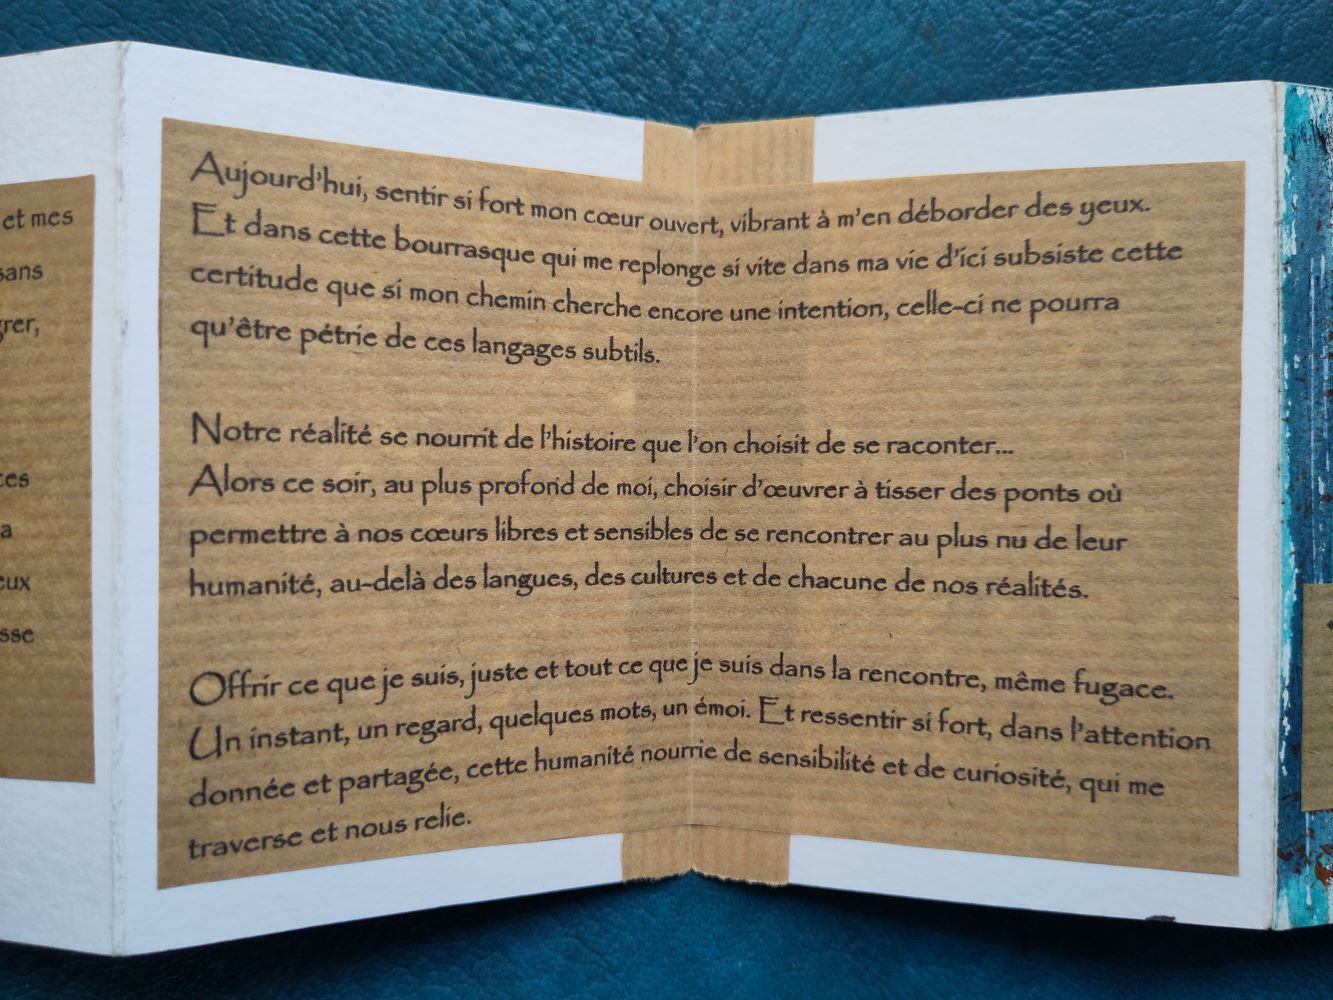 et mes
sans
grer,
ces
a
eux
sse
Aujourd'hui, sentir si fort mon cœur ouvert, vibrant à m'en déborder des yeux.
Et dans cette bourrasque qui me replonge si vite dans ma vie d'ici subsiste cette
certitude que si mon chemin cherche encore une intention, celle-ci ne pourra
qu'être pétrie de ces langages subtils.
Notre réalité se nourrit de l'histoire que l'on choisit de se raconter...
Alors ce soir, au plus profond de moi, choisir d'œuvrer à tisser des ponts où
permettre à nos cœurs libres et sensibles de se rencontrer au plus nu de leur
humanité, au-delà des langues, des cultures et de chacune de nos réalités.
Offrir ce que je suis, juste et tout ce que je suis dans la rencontre, même fugace.
Un instant, un regard, quelques mots, un émoi. Et ressentir si fort, dans l'attention
donnée et partagée, cette humanité nourrie de sensibilité et de curiosité, qui me
traverse et nous relie.